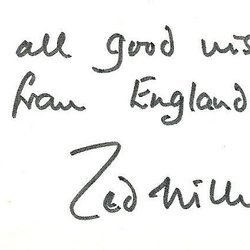 all good wis
from England
Zed